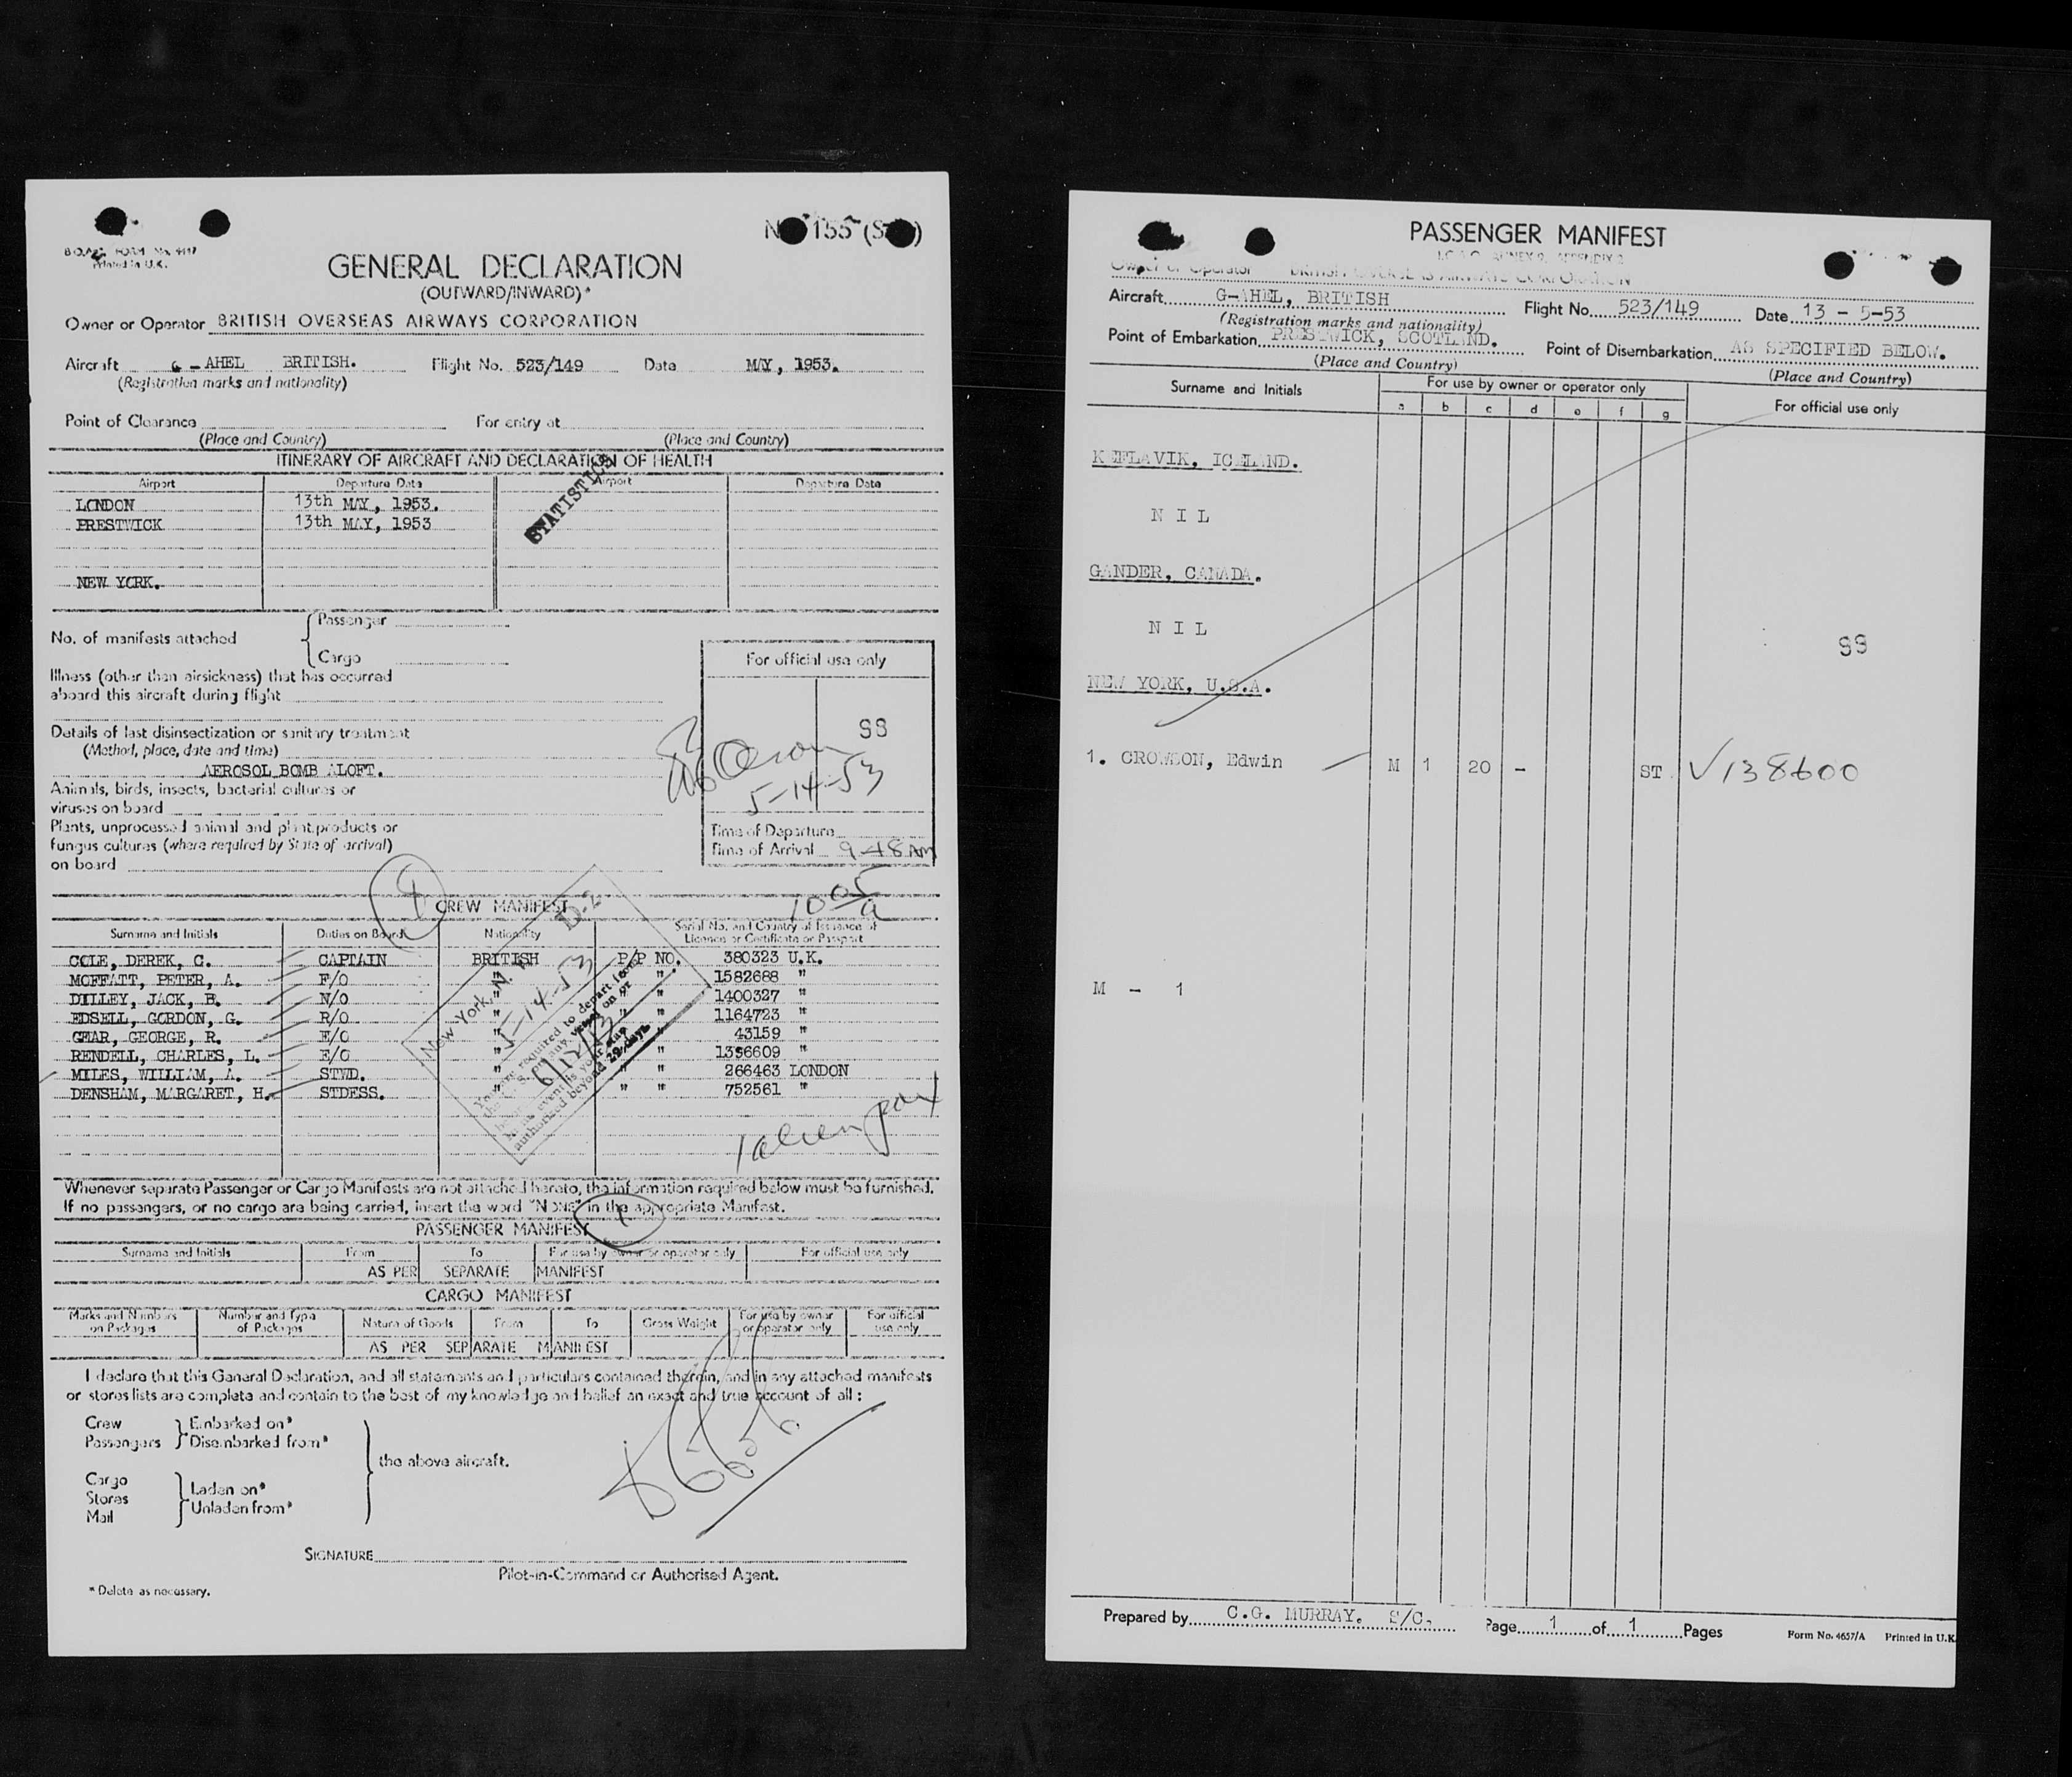 155
B.O.A.C. FORM No. 4417
Printed in U.K.
GENERAL DECLARATION
(OUTWARD/INWARD)*
Owner or Operator BRITISH OVERSEAS AIRWAYS CORPORATION
Aircraft G - AHEL BRITISH. Flight No. 523/149 Date MAY, 1953.
(Registration marks and nationality)
Point of Clearance For entry at
(Place and Country) (Place and Country)
ITINERARY OF AIRCRAFT AND DECLARATION OF HEALTH
Airport Departure Date Airport Departure Date
LONDON 13th MAY, 1953.
PRESTWICK 13th MAY, 1953
NEW YORK.
No. of manifests attached
Passenger
Cargo
Illness (other than airsickness) that has occurred
aboard this aircraft during flight
Details of last disinsectization or sanitary treatment
(Method, place, date and time)
AEROSOL BOMB ALOFT.
Animals, birds, insects, bacterial cultures or
viruses on board
Plants, unprocessed animal and plant products or
fungus cultures (where required by State of arrival)
on board
For official use only
SS
5-14-53
Time of Departure
Time of Arrival 9-48 AM
10 05/a
CREW MANIFEST
Surname and Initials Duties on Board Nationality Serial No. and Country of Issuance of
Licence or Certificate or Passport
COLE, DEREK, C. CAPTAIN BRITISH P/P NO. 380323 U.K.
MOFFATT, PETER, A. F/O " " " 1582688 "
DILLEY, JACK, B. N/O " " " 1400327 "
EDSELL, GORDON, G. R/O " " " 1164723 "
GEAR, GEORGE, R. E/O " " " 43159 "
RENDELL, CHARLES, L. E/O " " " 1356609 "
MILES, WILLIAM, A. STWD. " " " 266463 LONDON
DENSHAM, MARGARET, H. STDESS. " " " 752561 "
New York, N.Y. D-2
5-14-53
6/12/53
authorized beyond 29 days.
1 alien pax
Whenever separate Passenger or Cargo Manifests are not attached hereto, the information required below must be furnished.
If no passengers, or no cargo are being carried, insert the word "NONE" in the appropriate Manifest.
PASSENGER MANIFEST
1
Surname and Initials From To For use by owner or operator only For official use only
AS PER SEPARATE MANIFEST
CARGO MANIFEST
Marks and Numbers on Packages Number and Type of Packages Nature of Goods From To Gross Weight For use by owner or operator only For official use only
AS PER SEPARATE MANIFEST
I declare that this General Declaration, and all statements and particulars contained therein, and in any attached manifests
or stores lists are complete and contain to the best of my knowledge and belief an exact and true account of all :
Crew Embarked on*
Passengers Disembarked from*
the above aircraft.
Cargo Laden on*
Stores
Unladen from*
Mail
SIGNATURE
Pilot-in-Command or Authorised Agent.
* Delete as necessary.
PASSENGER MANIFEST
I.C.A.O. ANNEX 9, APPENDIX 2
Owner or Operator BRITISH OVERSEAS AIRWAYS CORPORATION
Aircraft G-AHEL, BRITISH Flight No. 523/149 Date 13 - 5-53
(Registration marks and nationality)
Point of Embarkation PRESTWICK, SCOTLAND. Point of Disembarkation AS SPECIFIED BELOW.
(Place and Country) (Place and Country)
Surname and Initials For use by owner or operator only For official use only
a b c d e f g
KEFLAVIK, ICELAND.
N I L
GANDER, CANADA.
N I L
SS
NEW YORK, U.S.A.
1. CROWSON, Edwin M 1 20 - ST V138600
M - 1
Prepared by C.G. MURRAY. S/C. Page 1 of 1 Pages
Form No. 4657/A Printed in U.K.